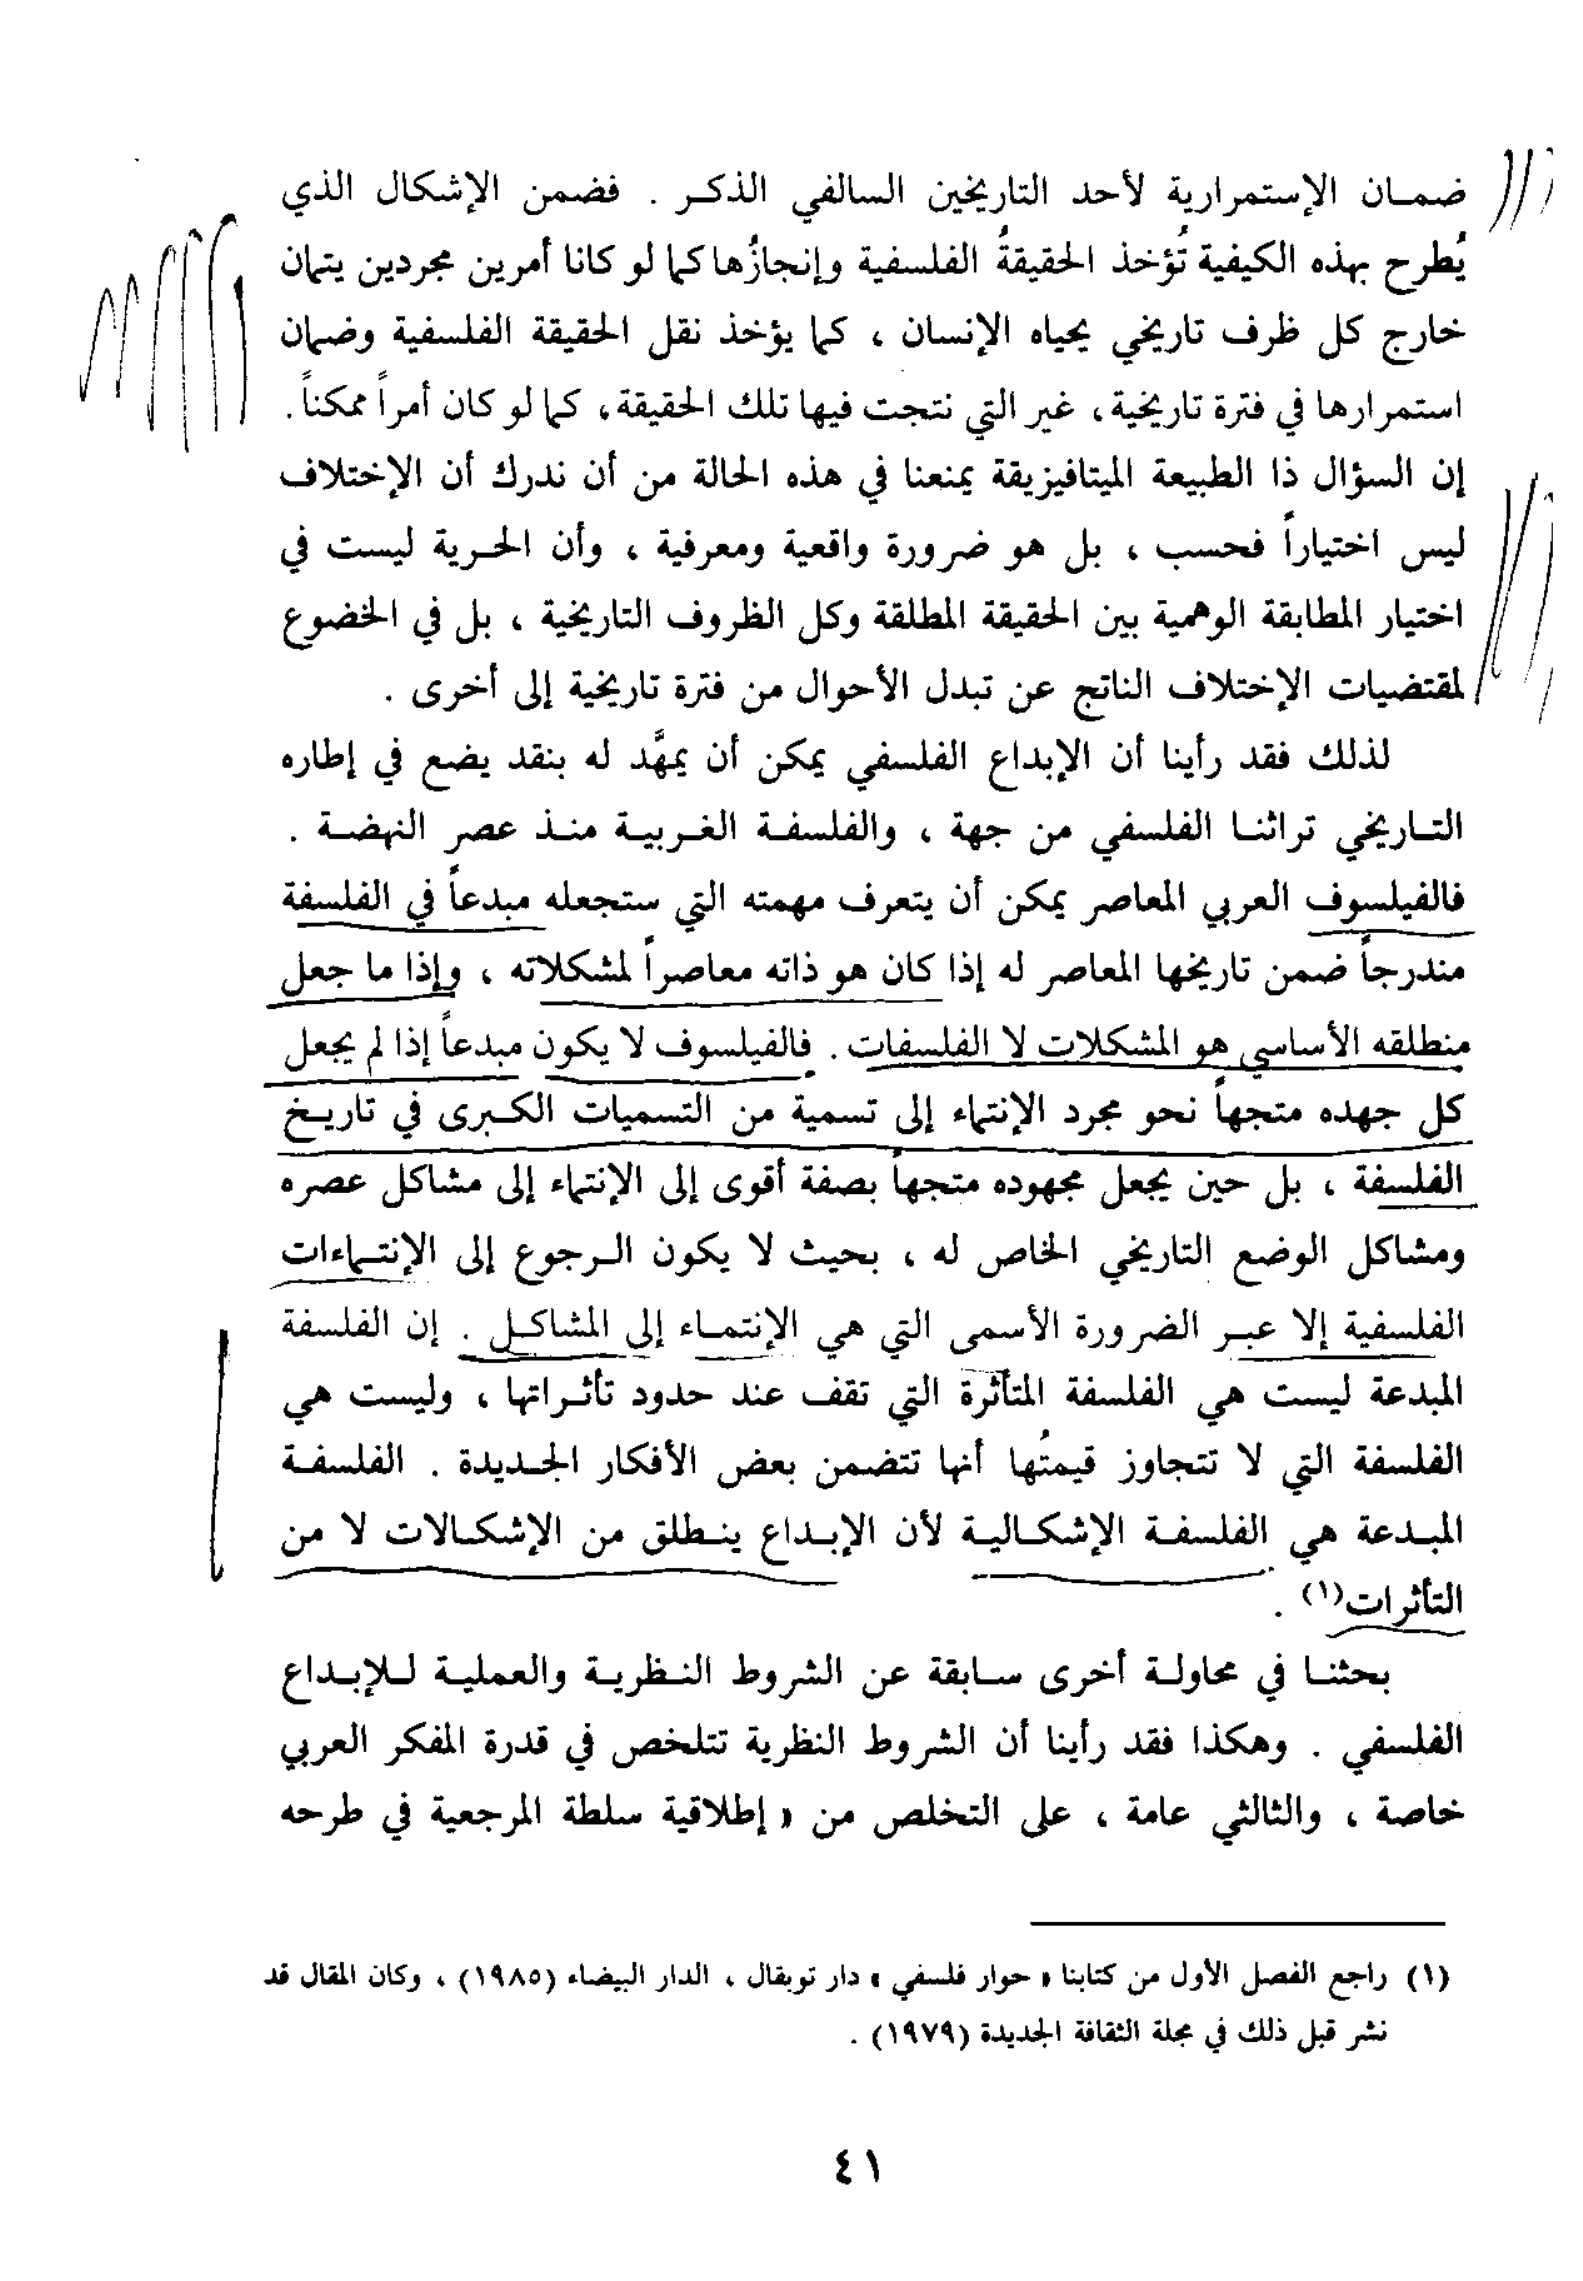 ضمـان الإستمرارية لأحد التاريخين السالفي الذكـر . فضمن الإشكال الذي
يُطرح بهذه الكيفية تُؤخذ الحقيقةُ الفلسفية وإنجازُها كما لو كانا أمرين مجردين يتمان
خارج كل ظرف تاريخي يحياه الإنسان ، كما يؤخذ نقل الحقيقة الفلسفية وضمان
استمرارها في فترة تاريخية، غير التي نتجت فيها تلك الحقيقة، كما لو كان أمراً ممكناً.
إن السؤال ذا الطبيعة الميتافيزيقة يمنعنا في هذه الحالة من أن ندرك أن الإختلاف
ليس اختياراً فحسب ، بل هو ضرورة واقعية ومعرفية ، وأن الحـرية ليست في
اختيار المطابقة الوهمية بين الحقيقة المطلقة وكل الظروف التاريخية ، بل في الخضوع
لمقتضيات الإختلاف الناتج عن تبدل الأحوال من فترة تاريخية إلى أخرى .
لذلك فقد رأينا أن الإبداع الفلسفي يمكن أن يمهَّد له بنقد يضع في إطاره
التـاريخي تراثنـا الفلسفي من جهة ، والفلسفـة الغـربيـة منـذ عصر النهضـة .
فالفيلسوف العربي المعاصر يمكن أن يتعرف مهمته التي ستجعله مبدعاً في الفلسفة
مندرجاً ضمن تاريخها المعاصر له إذا كان هو ذاته معاصراً لمشكلاته ، وإذا ما جعل
منطلقه الأساسي هو المشكلات لا الفلسفات . فالفيلسوف لا يكون مبدعاً إذا لم يجعل
كل جهده متجهاً نحو مجرد الإنتماء إلى تسمية من التسميات الكـبرى في تاريـخ
الفلسفة ، بل حين يجعل مجهوده متجهاً بصفة أقوى إلى الإنتماء إلى مشاكل عصره
ومشاكل الوضع التاريخي الخاص له ، بحيث لا يكون الـرجوع إلى الإنتـماءات
الفلسفية إلا عبـر الضرورة الأسمى التي هي الإنتمـاء إلى المشاكـل . إن الفلسفة
المبدعة ليست هي الفلسفة المتأثرة التي تقف عند حدود تأثـراتها ، وليست هي
الفلسفة التي لا تتجاوز قيمتُها أنها تتضمن بعض الأفكار الجـديدة . الفلسفـة
المبـدعة هي الفلسفـة الإشكـاليـة لأن الإبـداع ينـطلق من الإشكـالات لا من
التأثرات(١) .
بحثنـا في محاولـة أخرى سـابقة عن الشروط النـظريـة والعمليـة لـلإبـداع
الفلسفي . وهكذا فقد رأينا أن الشروط النظرية تتلخص في قدرة المفكر العربي
خاصة ، والثالثي عامة ، على التخلص من « إطلاقية سلطة المرجعية في طرحه
(١) راجع الفصل الأول من كتابنا « حوار فلسفي » دار توبقال ، الدار البيضاء (١٩٨٥) ، وكان المقال قد
نشر قبل ذلك في مجلة الثقافة الجديدة (١٩٧٩) .
٤١